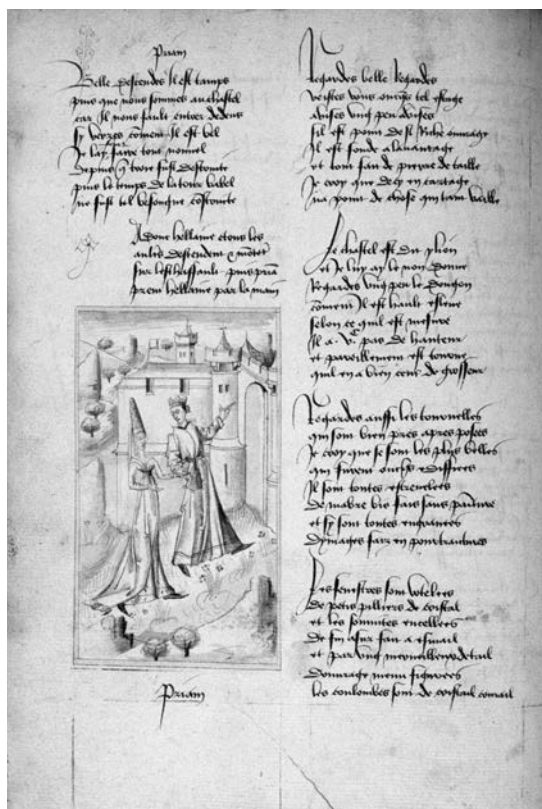 Priam
Belle descendes Il est temps
puis que nous sommes au chastel
car Il nous fault entrer dedens
sy verres coment Il est bel
Je lay faire tout nouvel
Depuis q troie fust destruite
puis le temps de la tour babel
ne fust tel besongne costruite
Adonc hellaine et tous les
aultres descendent et motet
sur leschaffault puis pria
prent hellaine par la main
Priam
Regardes belle Regardes
veistes vous oncqs tel estage
advises ung peu advises
sil est point de si Riche ouvrage
Il est fonde a lavantage
et tout fait de pierre de taille
Je croy que dicy en cartage
na point de chose qui tant vaille
Le chastel est dit ylion
et Je luy ay le non donne
Regardes ung peu le dongon
coment Il est hault esleve
selon ce quil est mesure
Il a vc pas de haulteur
et pareillement est trouve
quil en a bien cent de grosseur
Regardes aussi les tournelles
qui sont bien pres apres posees
Je croy que se sont les plus belles
qui furent oncqs ediffiees
Il sont toutes
De mabre bis fais sans painture
et sy sont toutes
Dymages fais en pourtraitures
Les fenestres sont
De petis pilliers de cristal
et les sommites
De fin asur fait a esmail
et par ung merveilleux detail
Douvrage menu figurees
les coulombes sont de cristail